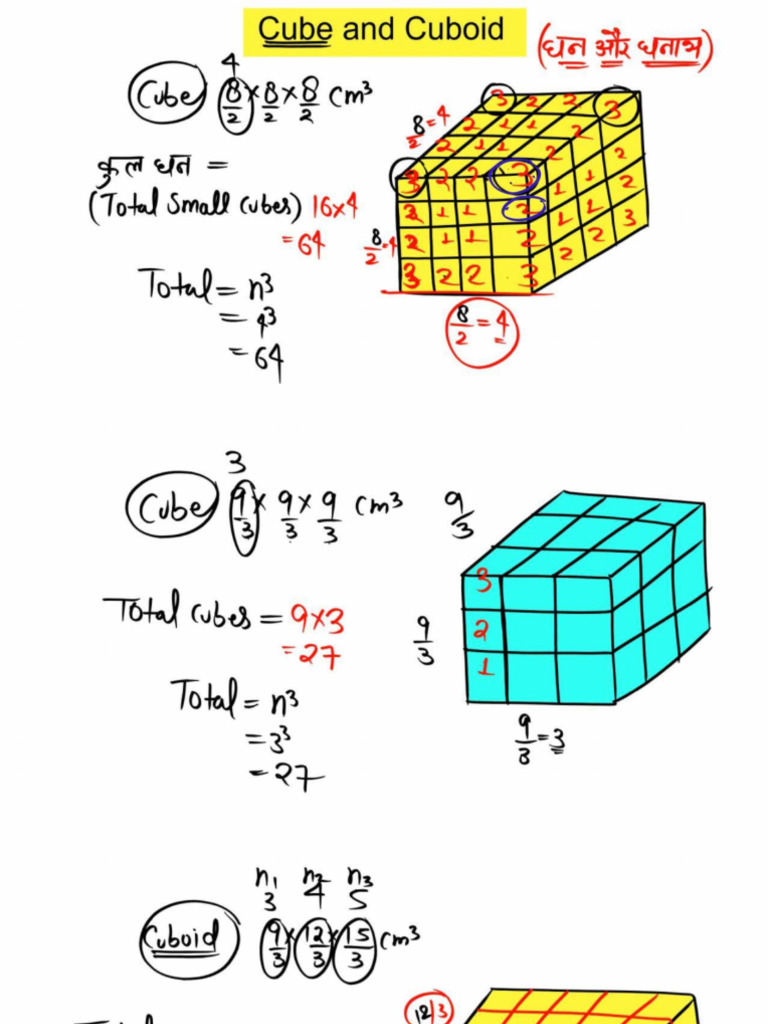 Cube and Cuboid
(घन और घनाभ)
4
Cube 8/2 × 8/2 × 8/2 cm³
कुल घन =
(Total Small Cubes) 16×4
= 64
Total = n³
= 4³
= 64
8/2 = 4
3 2 2 3
2 1 1 2
2 1 1 2
3 2 2 3
2 1 1 2
2 1 1 2
3 2 2 3
1 1 2
1 1 2
2 2 3
8/2 = 4
8/2 = 4
3
Cube 9/3 × 9/3 × 9/3 cm³
9/3
Total Cubes = 9×3
= 27
9/3
3
2
1
Total = n³
= 3³
= 27
9/3 = 3
n₁ n₂ n₃
3 4 5
Cuboid 9/3 × 12/3 × 15/3 cm³
12/3